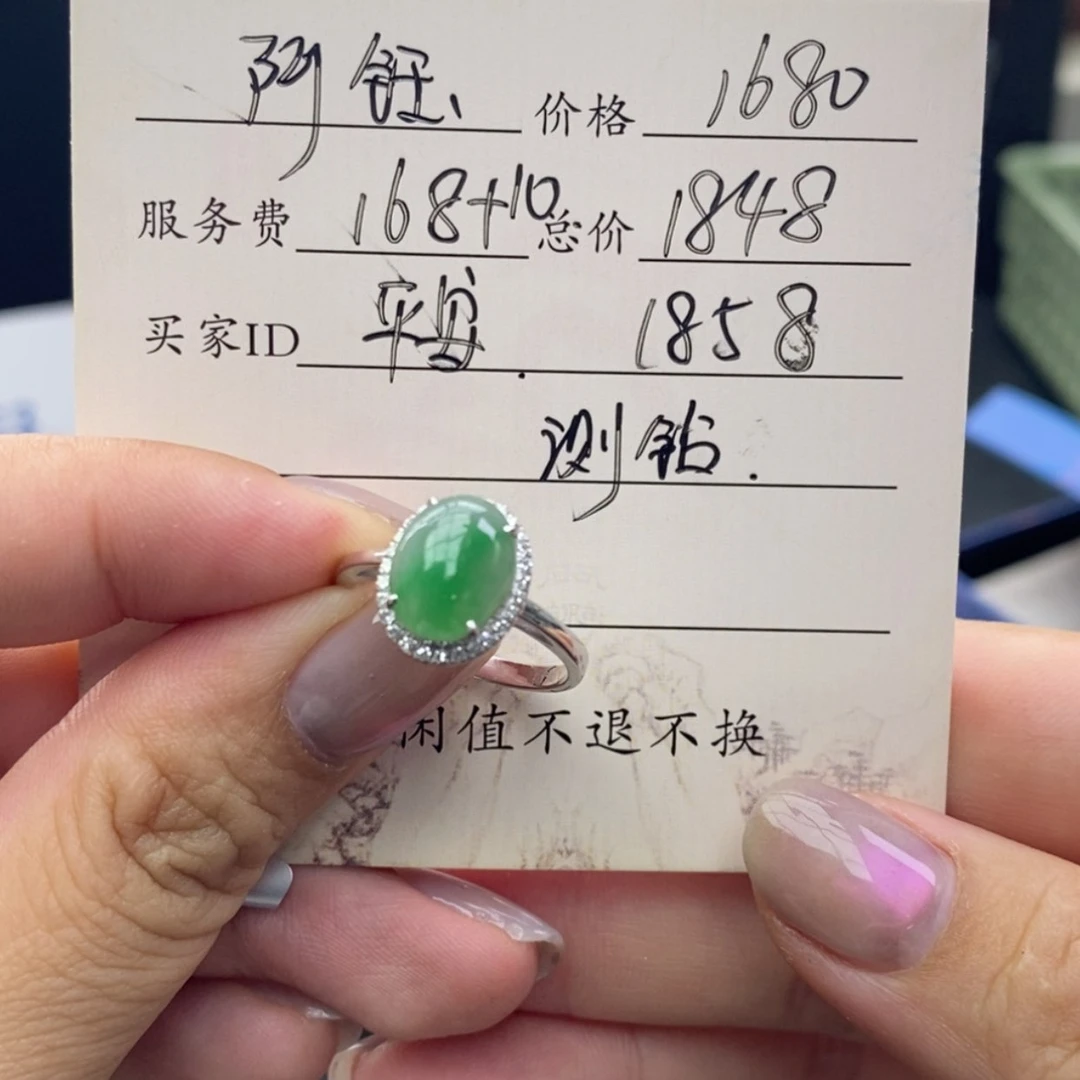 阿钰、 价格 1680
服务费 168+10 总价 1848
买家ID 平安. 1858
测钻.
闲值不退不换